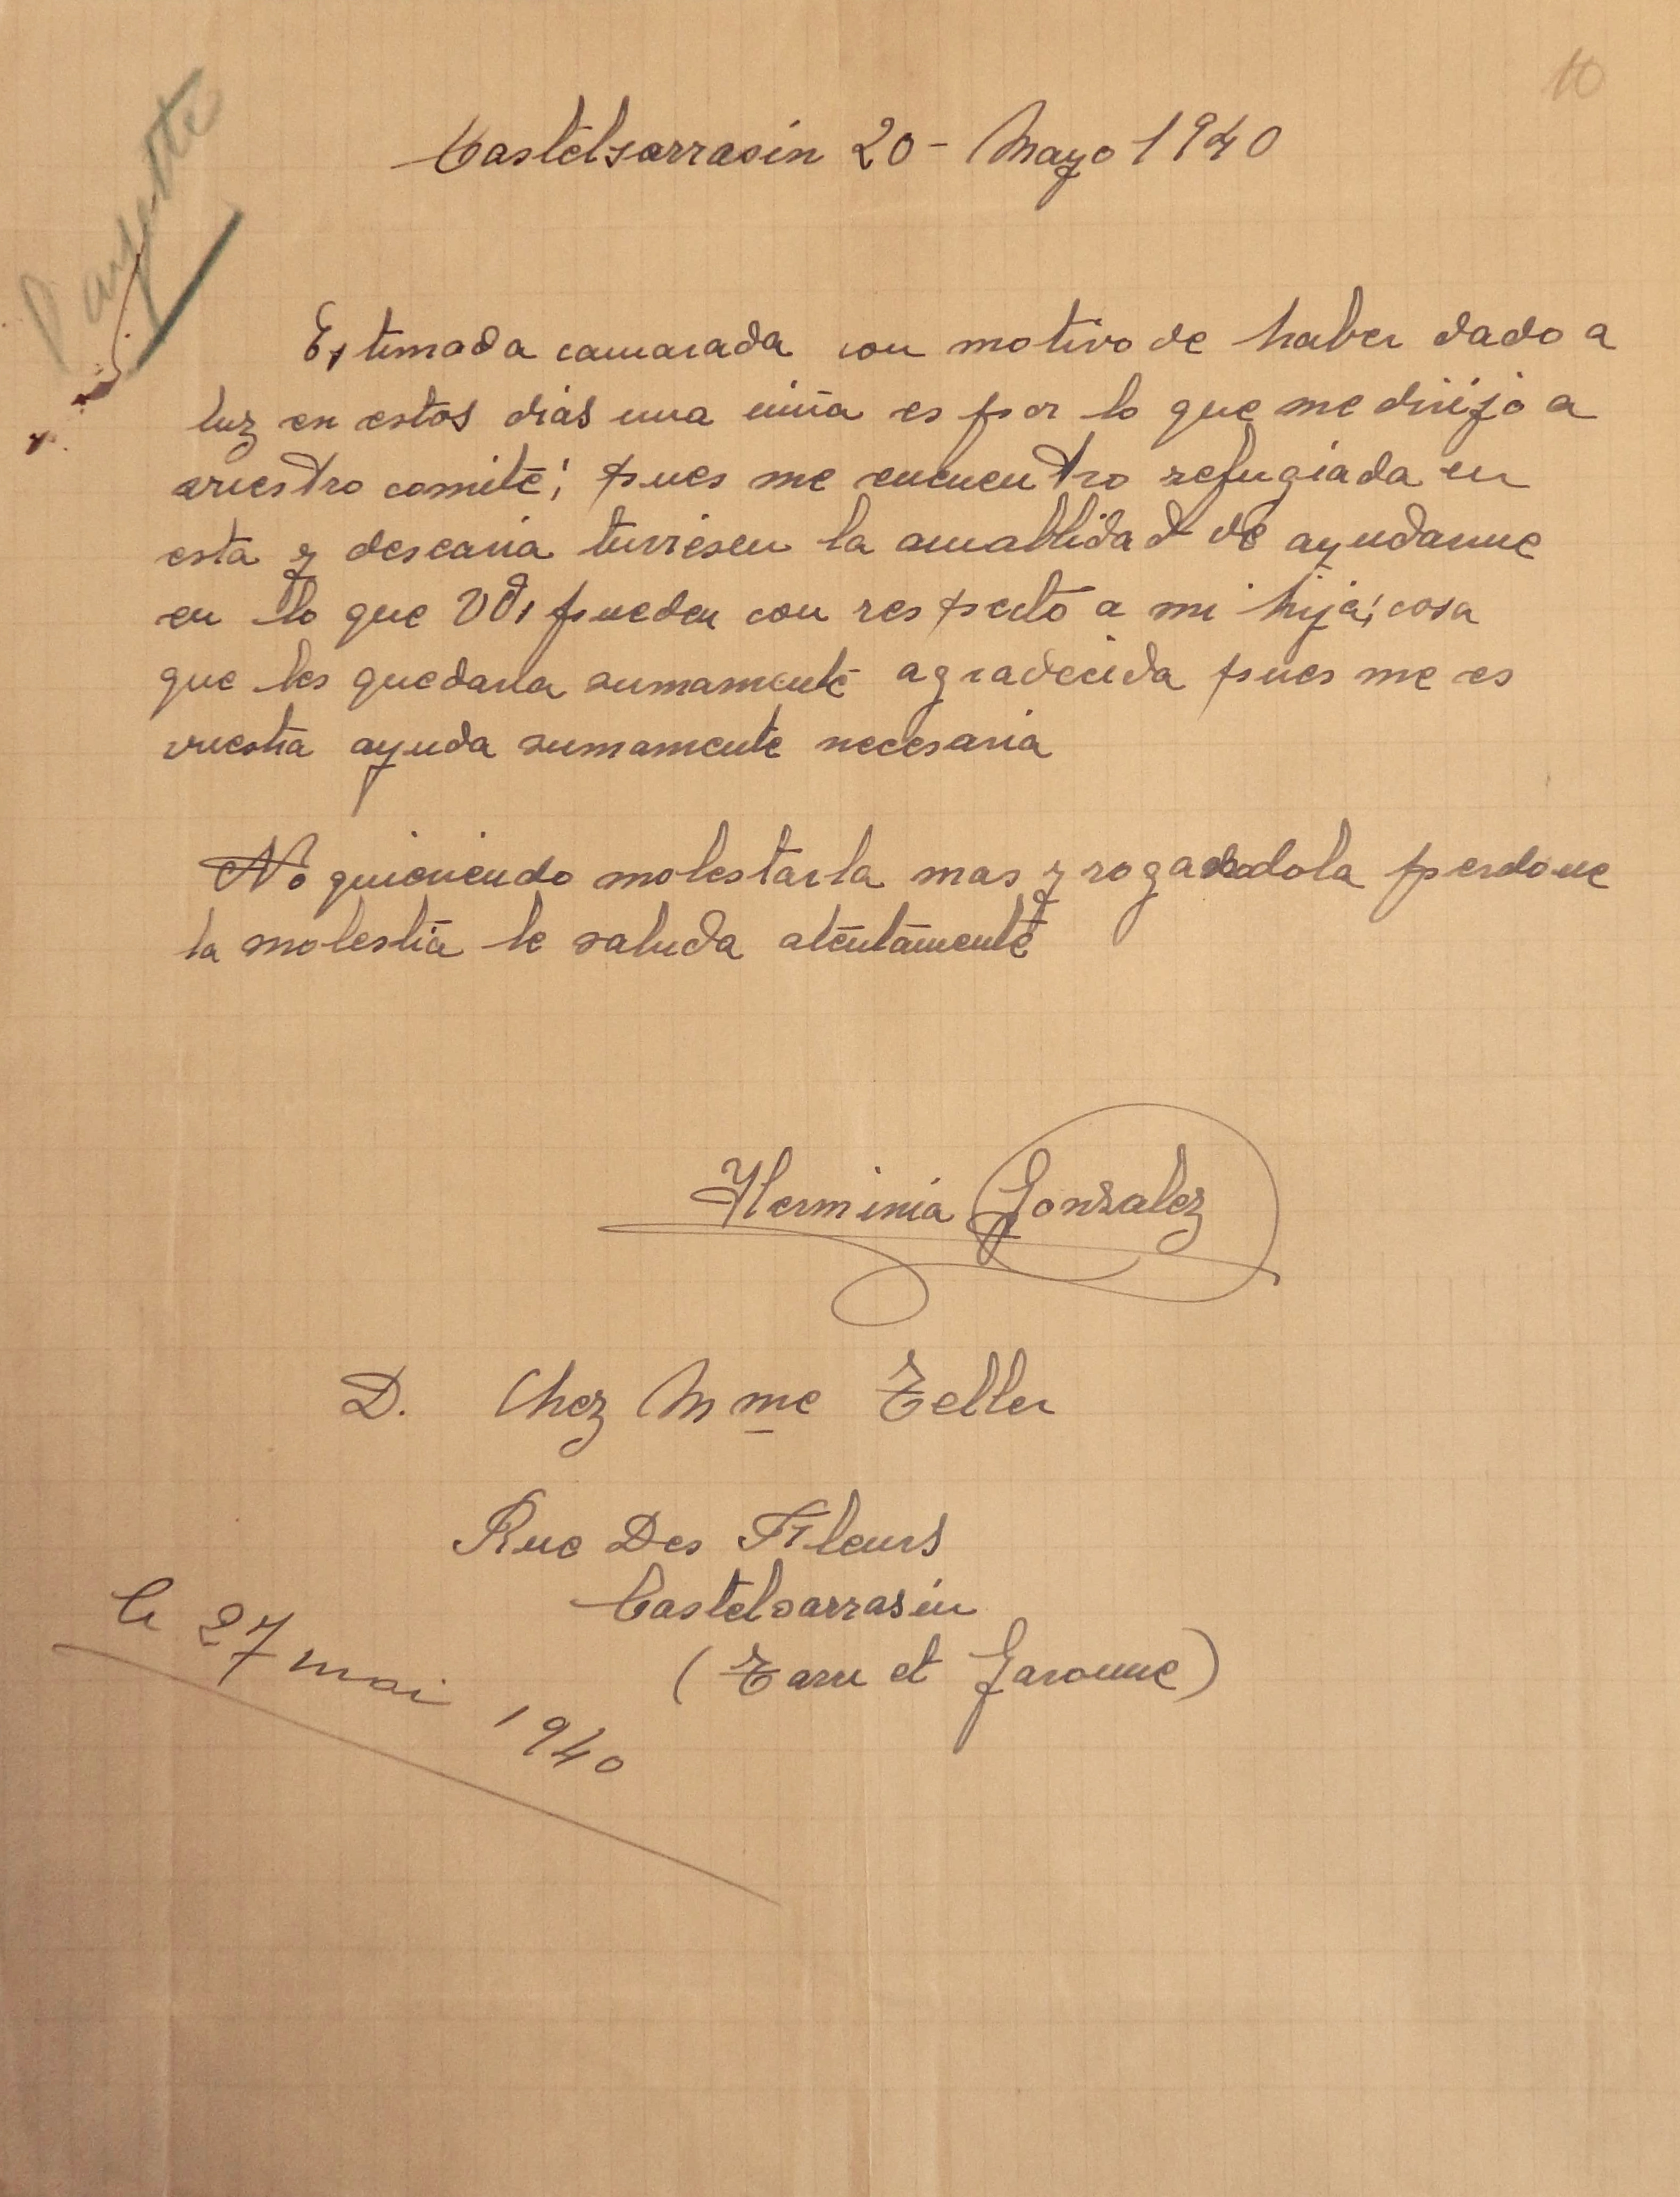 10
Castelsarrasin 20 - Mayo 1940
Estimada camarada con motivo de haber dado a
luz en estos dias una niña es por lo que me dirijo a
vuestro comité; pues me encuentro refugiada en
esta y desearia tuviesen la amabllidad de ayudarme
en lo que Vds pueden con respecto a mi hija; cosa
que les quedaria sumamente agradecida pues me es
vuestra ayuda sumamente necesaria
No quieriendo molestarla mas y rogandola perdone
la molestia le saluda atentamente
Herminia Gonzalez
D. Chez Mme Teller
Rue Des Fleurs
Castelsarrasin
(Tarn et Garonne)
le 27 mai 1940